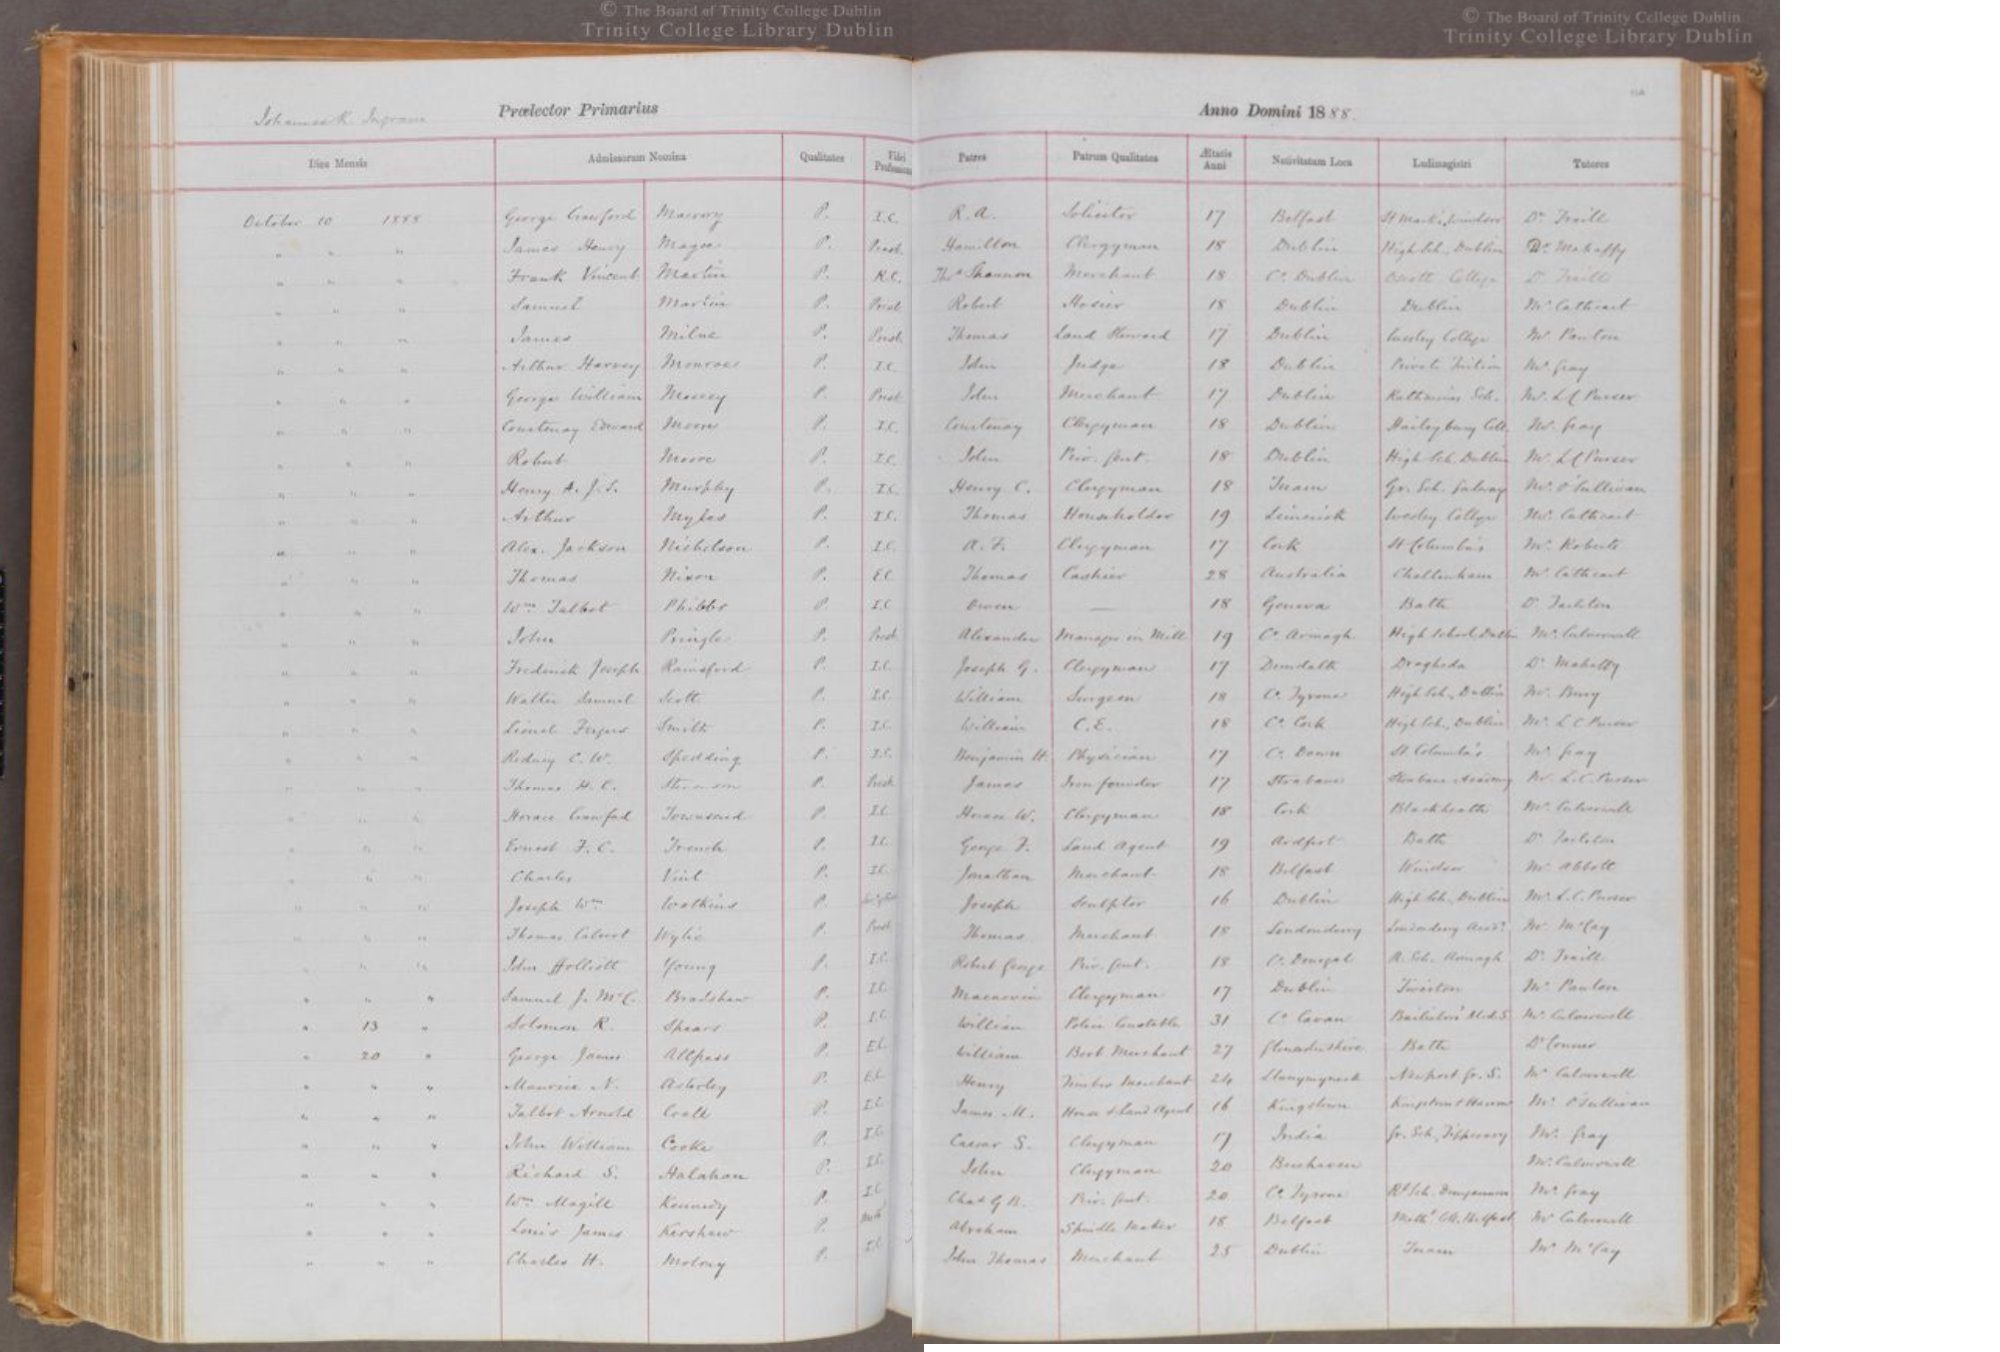 © The Board of Trinity College Dublin
Trinity College Library Dublin
© The Board of Trinity College Dublin
Trinity College Library Dublin
Johannes K. Ingram Prælector Primarius Anno Domini 1888.
Dies Mensis Admissorum Nomina Qualitates Fidei Professiones Patres Patrum Qualitates Ætatis Anni Nativitatum Loca Ludimagistri Tutores
October 10 1888 George Crawford P. I.C. R. A. Solicitor 17 Belfast St Mark's, Windsor Dr Traill
" " " James Henry Magee P. Presb. Hamilton Clergyman 18 Dublin High Sch., Dublin Dr Mahaffy
" " " Frank Vincent Martin P. R.C. Thos Shannon Merchant 18 Co. Dublin Oscott College Dr Traill
" " " Samuel Martin P. Presb. Robert Hosier 18 Dublin Dublin Mr Cathcart
" " " James Milne P. Presb. Thomas Land Steward 17 Dublin Wesley College Mr Panton
" " " Arthur Harvey Monroe P. I.C. John Judge 18 Dublin Private Tuition Mr Gray
" " " George William P. Presb. John Merchant 17 Dublin Rathmines Sch. Mr. L C Purser
" " " Courtenay Edward Moore P. I.C. Courtenay Clergyman 18 Dublin Haileybury Coll. Mr. Gray
" " " Robert Moore P. I.C. John Priv. Gent. 18 Dublin High Sch. Dublin Mr. L C Purser
" " " Henry A. J.S. Murphy P. I.C. Henry C. Clergyman 18 Tuam Gr. Sch. Galway Mr. O'Sullivan
" " " Arthur Myles P. I.C. Thomas Householder 19 Limerick Wesley College Mr. Cathcart
" " " Alex. Jackson Nicholson P. I.C. A. F. Clergyman 17 Cork St Columba's Mr. Roberts
" " " Thomas Nixon P. E.C. Thomas Cashier 28 Australia Cheltenham Mr. Cathcart
" " " Wm Talbot Phibbs P. I.C. Owen — 18 Geneva Bath Dr. Tarleton
" " " John Pringle P. Presb. Alexander Manager in Mill 19 Co. Armagh High School, Dublin Mr. Culverwell
" " " Frederick Joseph Rainsford P. I.C. Joseph G. Clergyman 17 Dundalk Drogheda Dr. Mahaffy
" " " Walter Samuel Scott P. I.C. William Surgeon 18 Co. Tyrone High Sch., Dublin Mr. Bury
" " " Lionel Fergus Smith P. I.C. William C.E. 18 Co. Cork High Sch., Dublin Mr. L C Purser
" " " Rodney C. W. Spedding P. I.C. Benjamin H. Physician 17 Co. Down St Columba's Mr. Gray
" " " Thomas H. C. Stevenson P. Presb. James Iron founder 17 Strabane Strabane Academy Mr. L.C. Purser
" " " Horace Crawford Townsend P. I.C. Horace W. Clergyman 18 Cork Blackheath Mr. Culverwell
" " " Ernest F. C. French P. I.C. George F. Land Agent 19 Ardfert Bath Dr Tarleton
" " " Charles Vint P. I.C. Jonathan Merchant 18 Belfast Windsor Mr. Abbott
" " " Joseph Wm Watkins P. Joseph Sculptor 16 Dublin High Sch., Dublin Mr. L.C. Purser
" " " Thomas Calvert Wylie P. Presb. Thomas Merchant 18 Londonderry Londonderry Acad. Mr McCay
" " " John Young P. I.C. Robert George Priv. Gent. 18 Co. Donegal R. Sch. Armagh Dr. Traill
" " " Samuel J. McC. Bradshaw P. I.C. Macnevin Clergyman 17 Dublin Tiverton Mr. Panton
" 13 " Solomon R. Spears P. I.C. William Police Constable 31 Co. Cavan Mr. Culverwell
" 20 " George James Allpass P. E.C. William Boot Merchant 27 Gloucestershire Bath Dr Conner
" " " Maurice N. Asterley P. E.C. Henry Timber Merchant 24 Llanymynech Newport Gr. S. Mr Culverwell
" " " Talbot Arnold Coall P. I.C. James M. House & Land Agent 16 Kingstown Mr. O'Sullivan
" " " John William Cooke P. I.C. Caesar S. Clergyman 17 India Gr. Sch., Tipperary Mr. Gray
" " " Richard S. Halahan P. I.C. John Clergyman 20 Berehaven Mr. Culverwell
" " " Wm Magill Kennedy P. I.C. Chas G B. Priv. Gent. 20 Co. Tyrone Rl Sch. Dungannon Mr. Gray
" " " Louis James Kershaw P. Meth. Abraham Spindle Maker 18 Belfast Meth. Coll. Belfast Mr Culverwell
" " " Charles H. Molony P. I.C. John Thomas Merchant 25 Dublin Tuam Mr McCay